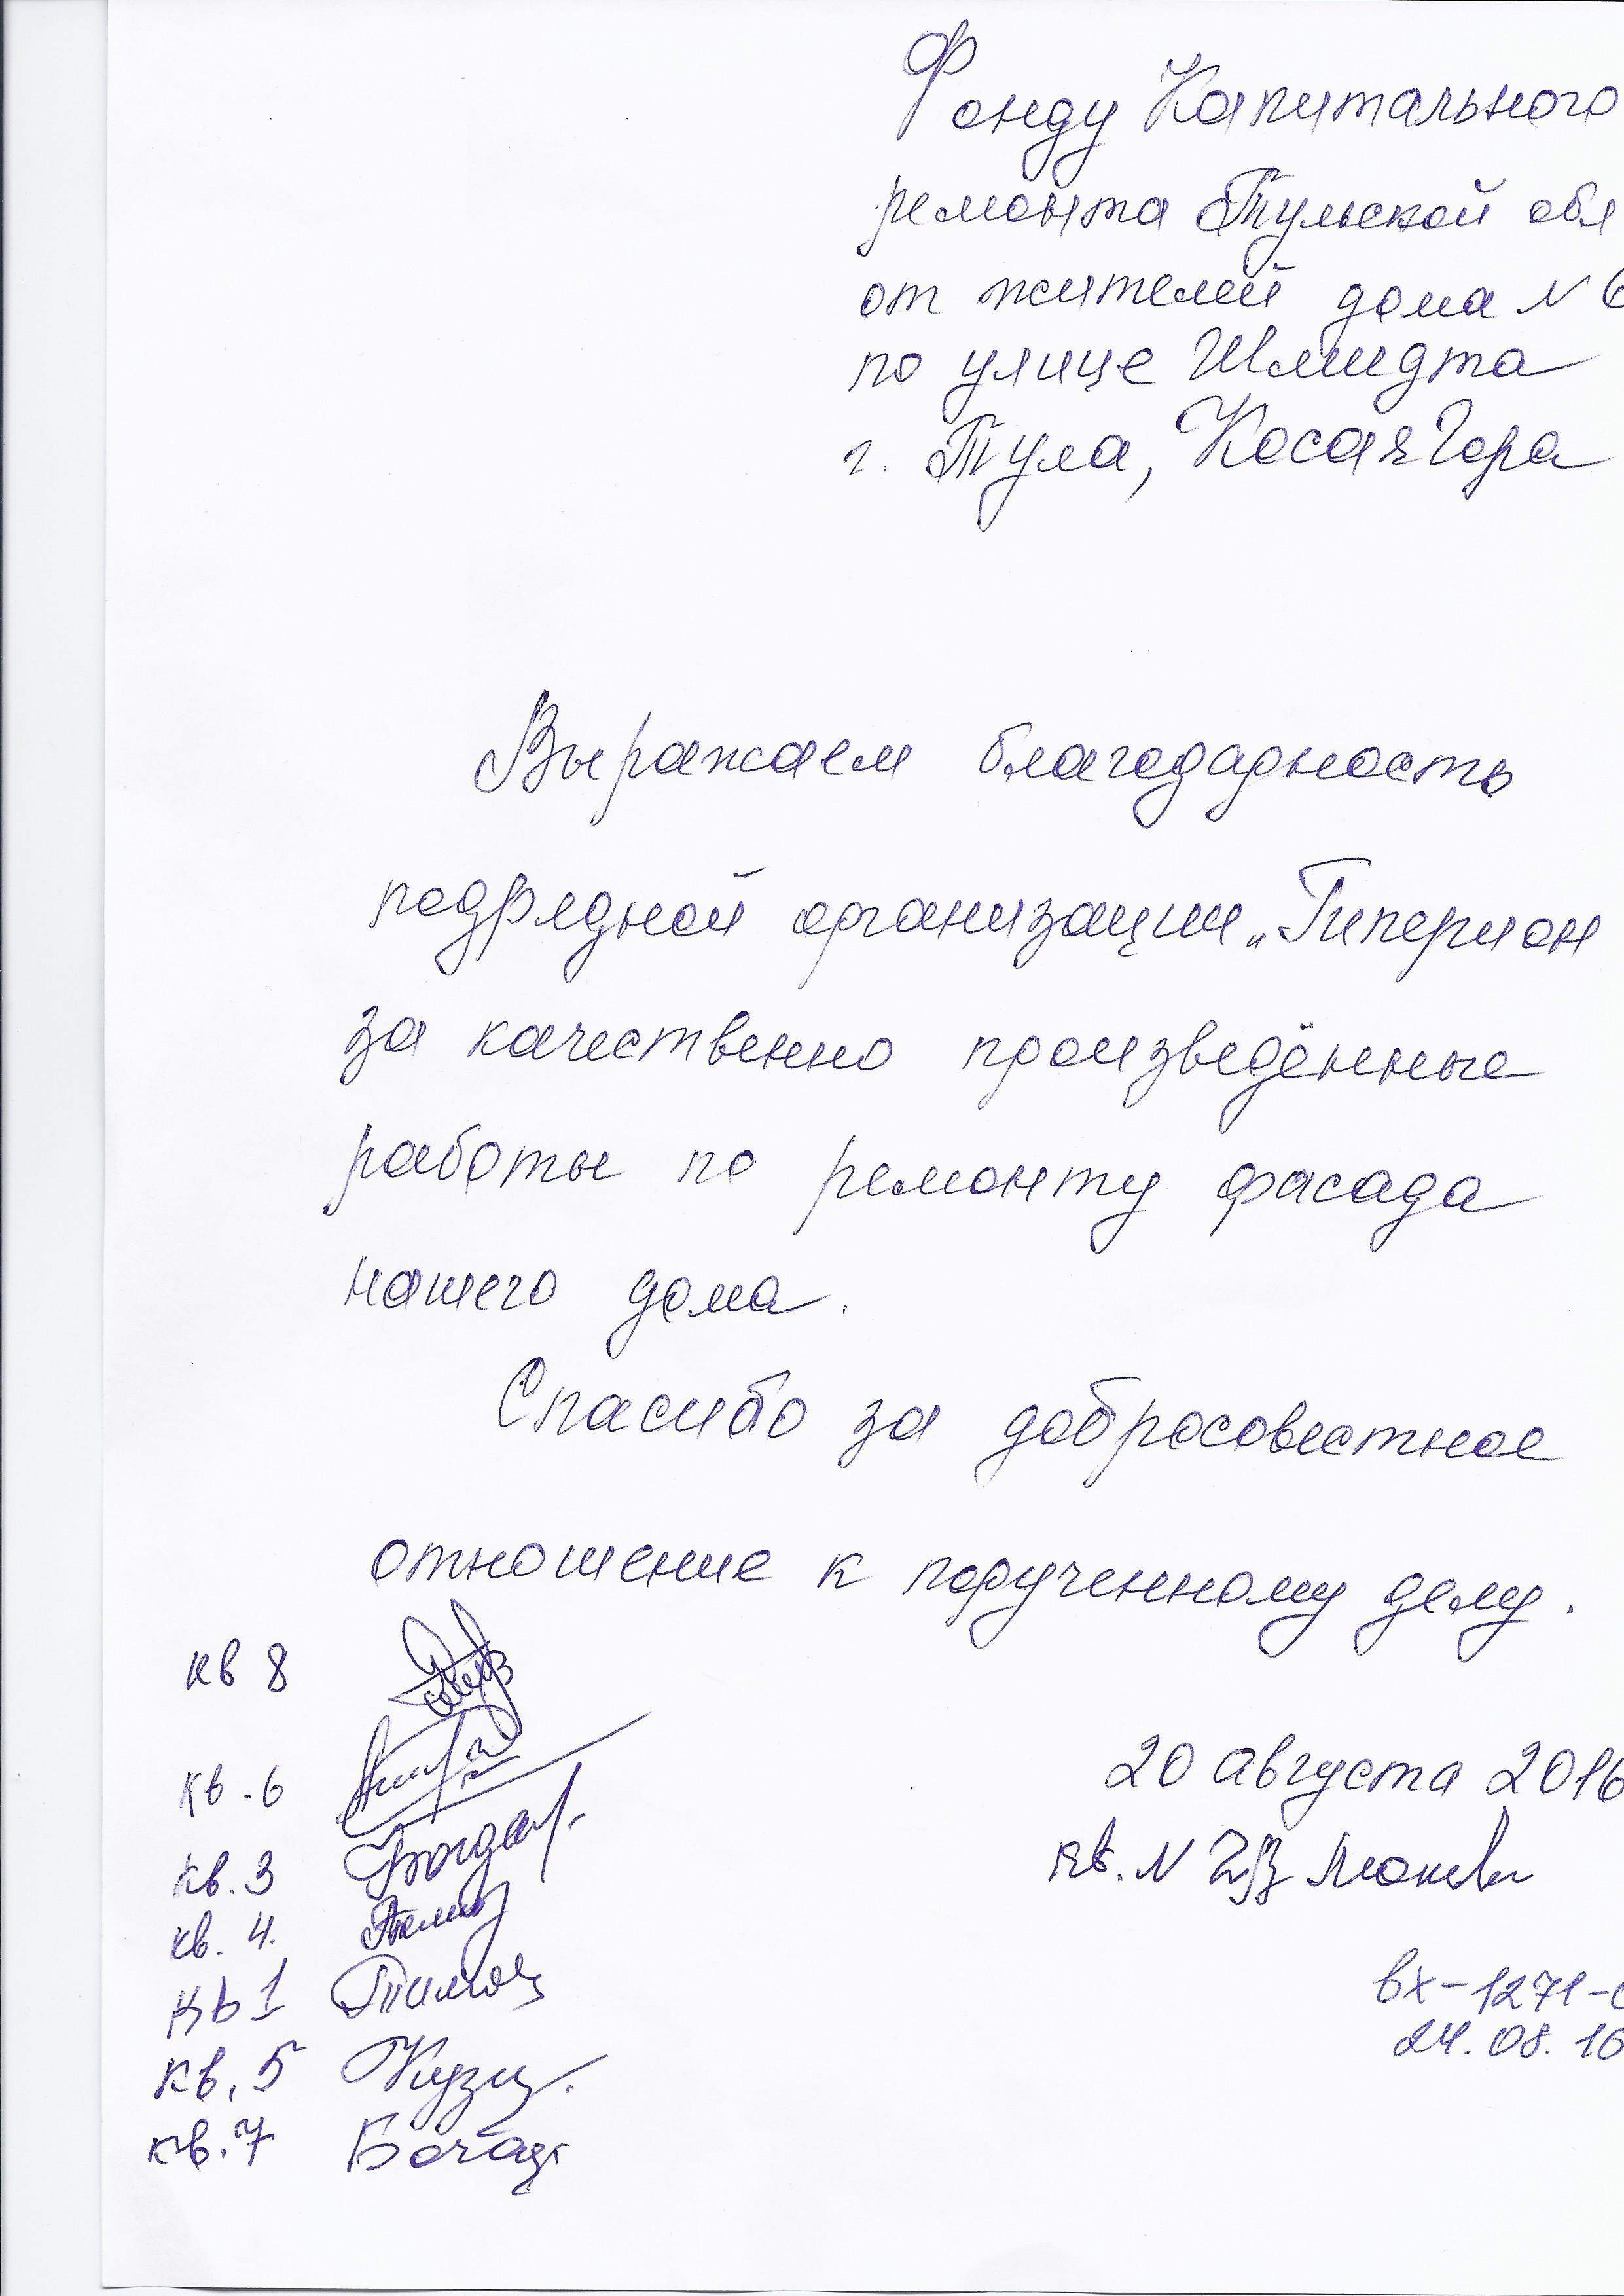 Фонду Капитального
ремонта Тульской обл
от жителей дома N 6
по улице Шмидта
г. Тула, Косая Гора
Выражаем благодарность
подрядной организации „Гиперион
за качественно произведённые
работы по ремонту фасада
нашего дома.
Спасибо за добросовестное
отношение к порученному делу.
кв 8
кв. 6
20 августа 2016
кв. 3
кв. N 2
кв. 4.
кв 1
вх-1271-
24.08.16
кв. 5
кв. 7